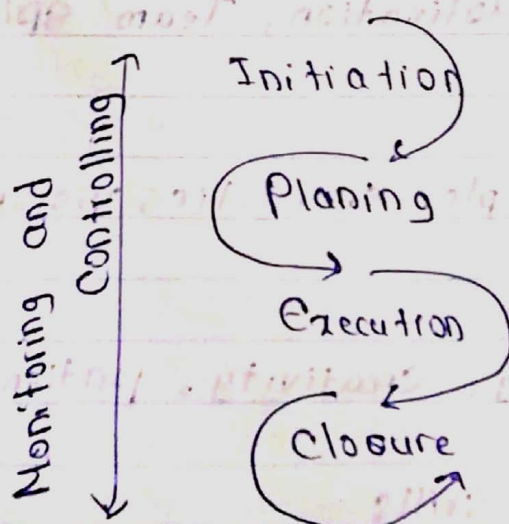 Monitoring and
Controlling
Initiation
Planing
Execution
Closure